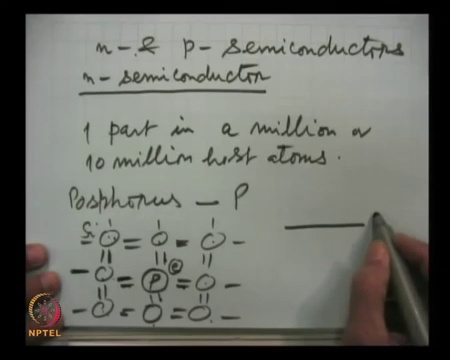 n- & p- semiconductors
n- semiconductor
1 part in a million or
10 million host atoms.
Posphorus — P
Si
P
e
NPTEL